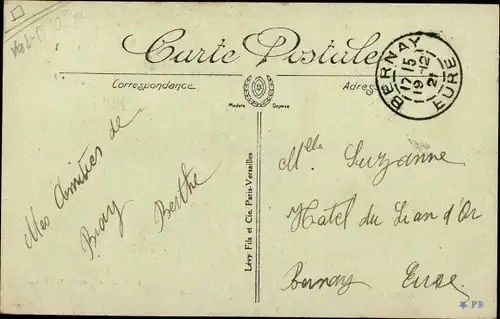 Carte Postale
Correspondance
Adres
Modèle Déposé
BERNAY
17 15
19-12
21
EURE
Mes Amitiés de
Bray
Berthe
Lévy Fils et Cie, Paris-Versailles
Mlle Suzanne
Hotel du Lion d'Or
Bernay Eure
PB